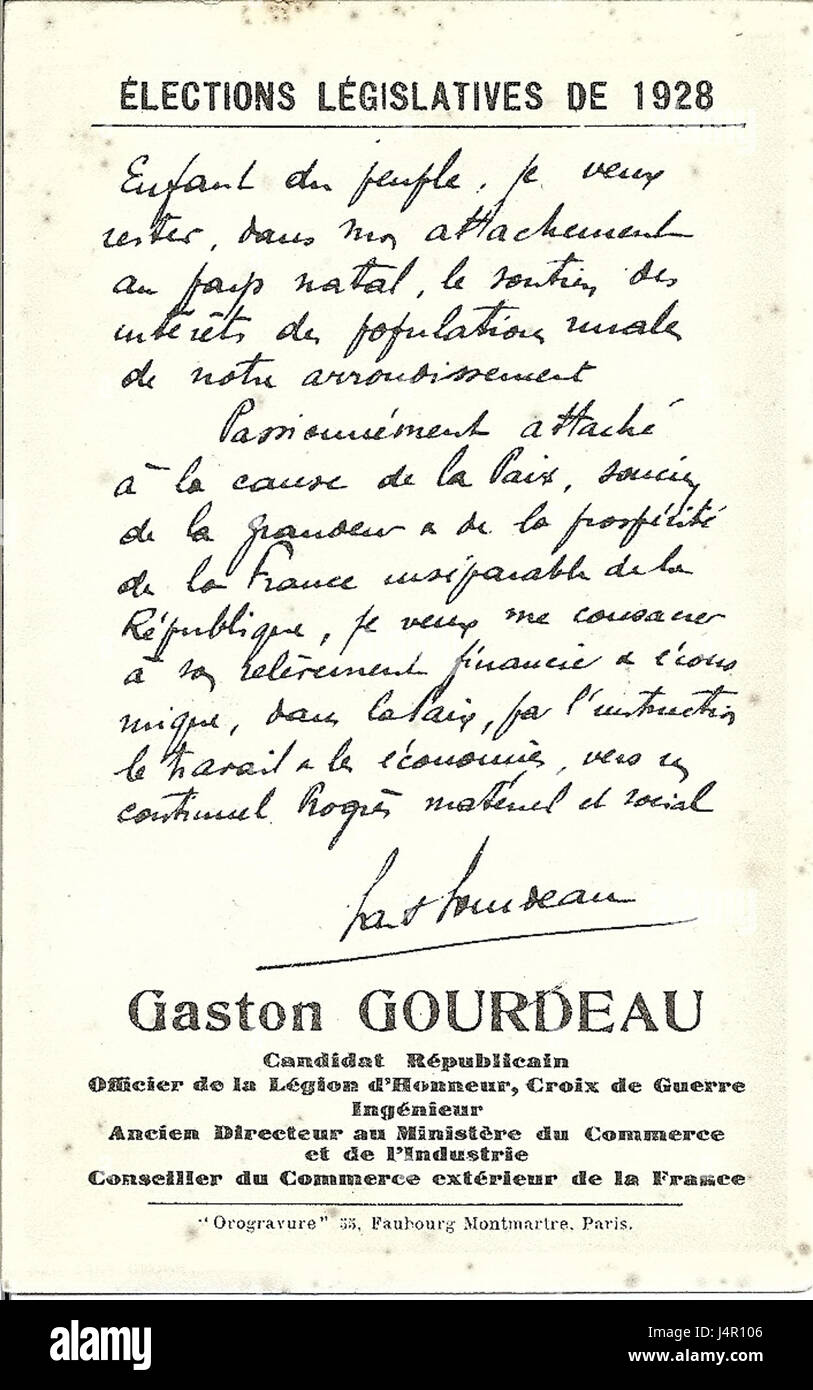 ÉLECTIONS LÉGISLATIVES DE 1928
Enfant du peuple, je veux
rester, dans mon attachement
au pays natal, le soutien des
intérêts des populations rurales
de notre arrondissement
Passionnément attaché
à la cause de la Paix, soucieux
de la grandeur & de la prospérité
de la France inséparable de la
République, je veux me consacrer
à son relèvement financier & écono
mique, dans la Paix, par l'instruction
le travail & les économies, vers un
continuel Progrès matériel et social
Gast Gourdeau
Gaston GOURDEAU
Candidat Républicain
Officier de la Légion d'Honneur, Croix de Guerre
Ingénieur
Ancien Directeur au Ministère du Commerce
et de l'Industrie
Conseiller du Commerce extérieur de la France
"Orogravure" 55, Faubourg Montmartre. Paris.
alamy
Image ID: J4R106
www.alamy.com